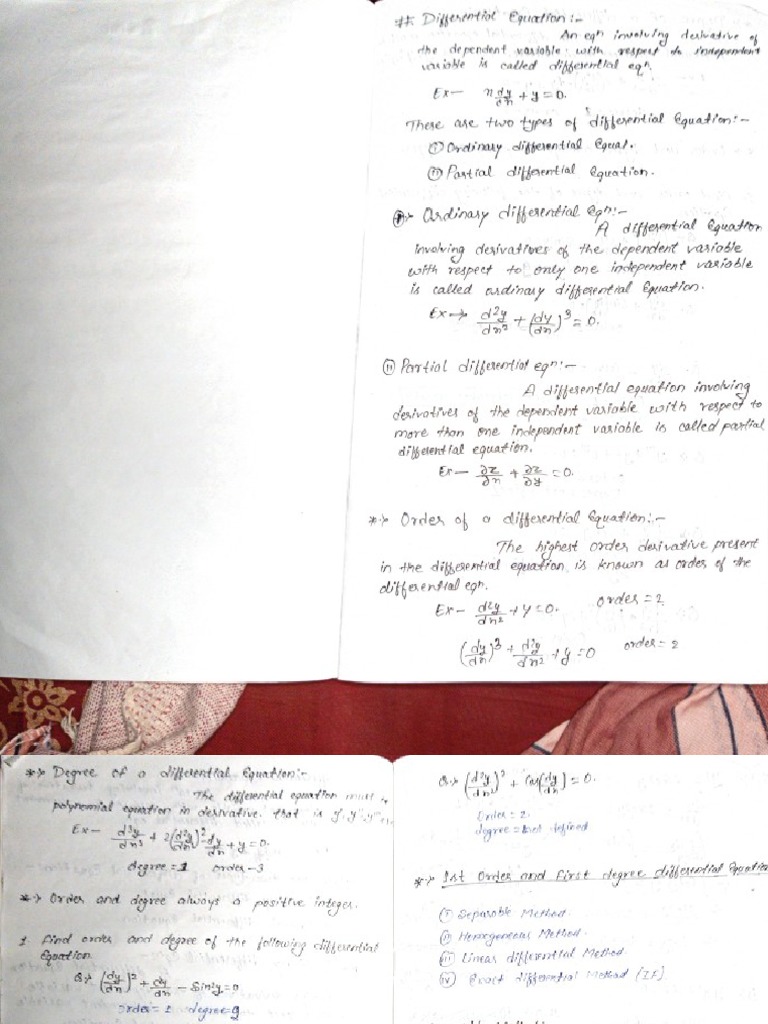 ## Differential Equation:-
An eqn involving derivative of
the dependent variable with respect to independent
variable is called differential eqn.
Ex- x dy/dx + y = 0.
There are two types of differential Equation:-
(i) Ordinary differential Equal.
(ii) Partial differential Equation.
(i) Ordinary differential Eqn:-
A differential Equation
involving derivatives of the dependent variable
with respect to only one independent variable
is called ordinary differential Equation.
Ex → d²y/dx² + (dy/dx)³ = 0.
(ii) Partial differential eqn:-
A differential equation involving
derivatives of the dependent variable with respect to
more than one independent variable is called partial
differential equation.
Ex- ∂z/∂x + ∂z/∂y = 0.
*:> Order of a differential Equation:-
The highest order derivative present
in the differential equation is known as order of the
differential eqn.
Ex- d²y/dx² + y = 0. order = 2
(dy/dx)³ + d²y/dx² + y = 0 order = 2
*:> Degree of a differential Equation:-
The differential equation must
polynomial equation in derivative. that is y', y'', y'''
Ex- d³y/dx³ + 2(d²y/dx²)² - dy/dx + y = 0.
degree = 1 order - 3
*:> Order and degree always a positive integer.
1. Find order and degree of the following differential
Equation
Q:> (dy/dx)² + dy/dx - Sin²y = 0
Order = 1 degree = 2
Q:> (d²y/dx²)³ + Cos(dy/dx) = 0.
Order = 2.
degree = not defined
*:> 1st Order and first degree differential Equation
(i) Separable Method.
(ii) Homogeneous Method.
(iii) Linear differential Method.
(iv) Exact differential Method (IF)